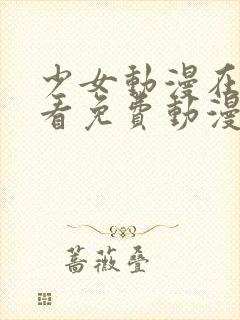 少女動漫在
看免費動漫
薔薇疊